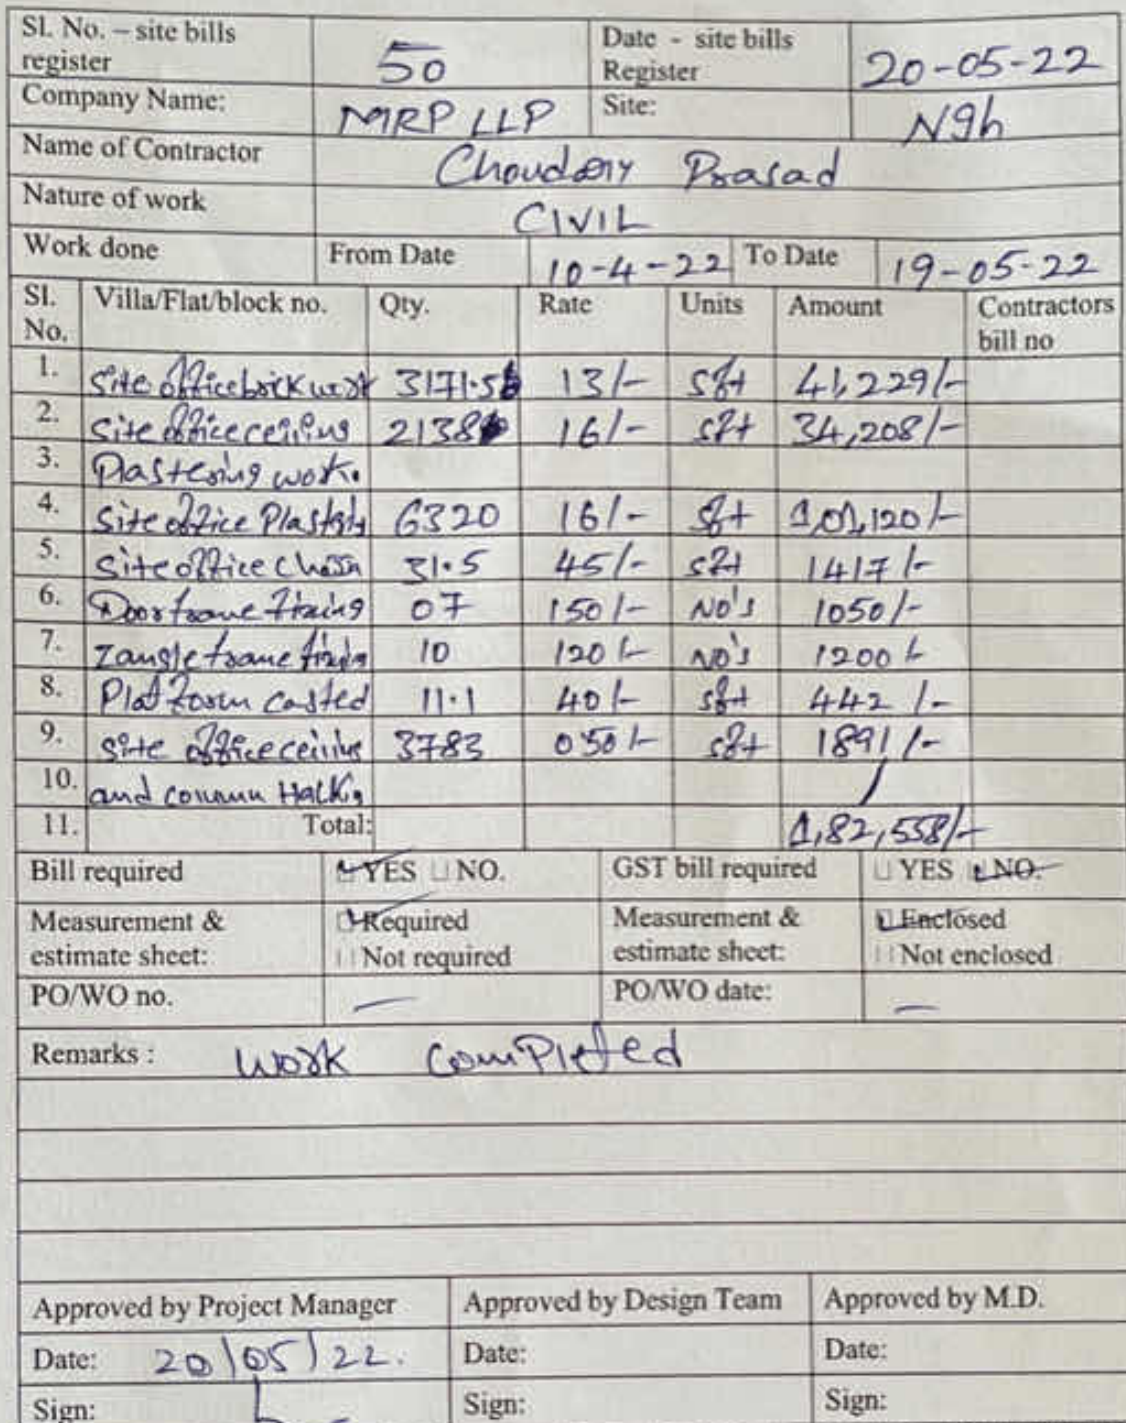 Sl. No. – site bills register 50 Date - site bills Register 20-05-22
Company Name: MRP LLP Site: Ngh
Name of Contractor Choudary Prasad
Nature of work CIVIL
Work done From Date 10-4-22 To Date 19-05-22
Sl. No. Villa/Flat/block no. Qty. Rate Units Amount Contractors bill no
1. Site office brick work 3171.5 13/- sft 41,229/-
2. Site office ceiling 2138 16/- sft 34,208/-
3. Plastering work.
4. Site office Plastring 6320 16/- sft 1,01,120/-
5. Site office 31.5 45/- sft 1417/-
6. Door frame fixing 07 150/- No's 1050/-
7. Zangle frame fixing 10 120/- No's 1200/-
8. Platform casted 11.1 40/- sft 442/-
9. Site office ceiling 3783 050/- sft 1891/-
10. and column
11. Total: 1,82,558/-
Bill required YES NO. GST bill required YES NO.
Measurement & estimate sheet: Required Measurement & estimate sheet: Enclosed
Not required Not enclosed
PO/WO no. — PO/WO date: —
Remarks : Work Completed
Approved by Project Manager Approved by Design Team Approved by M.D.
Date: 20/05/22. Date: Date:
Sign: Sign: Sign: